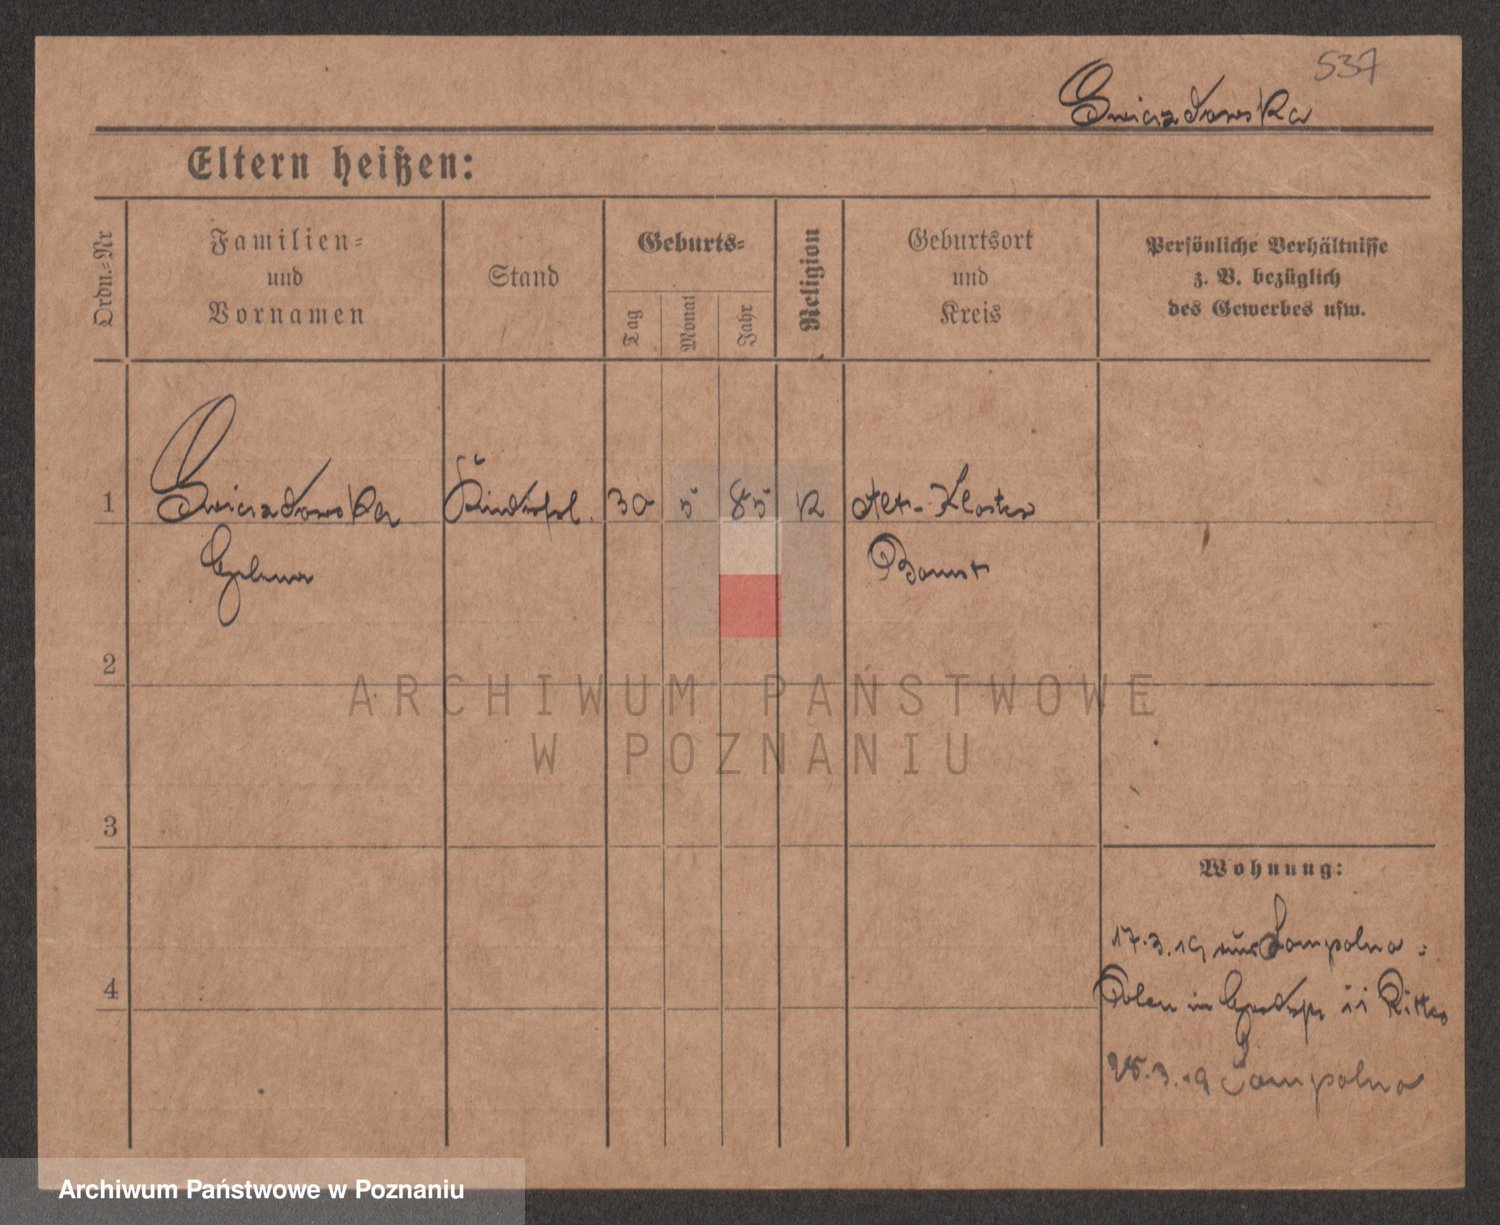 537
Gwiazdowska
Eltern heißen:
Ordn.-Nr
Familien-
und
Vornamen
Stand
Geburts-
Tag
Monat
Jahr
Religion
Geburtsort
und
Kreis
Persönliche Verhältnisse
z. B. bezüglich
des Gewerbes usw.
1 Gwiazdowska Kinderfrl. 30 5 85 K Alt-Kloster
Helena Bomst
2
ARCHIWUM PAŃSTWOWE
W POZNANIU
3
Wohnung:
17.3.19 aus Sompolno
Polen in
4
25.3.19 Sompolno
Archiwum Państwowe w Poznaniu